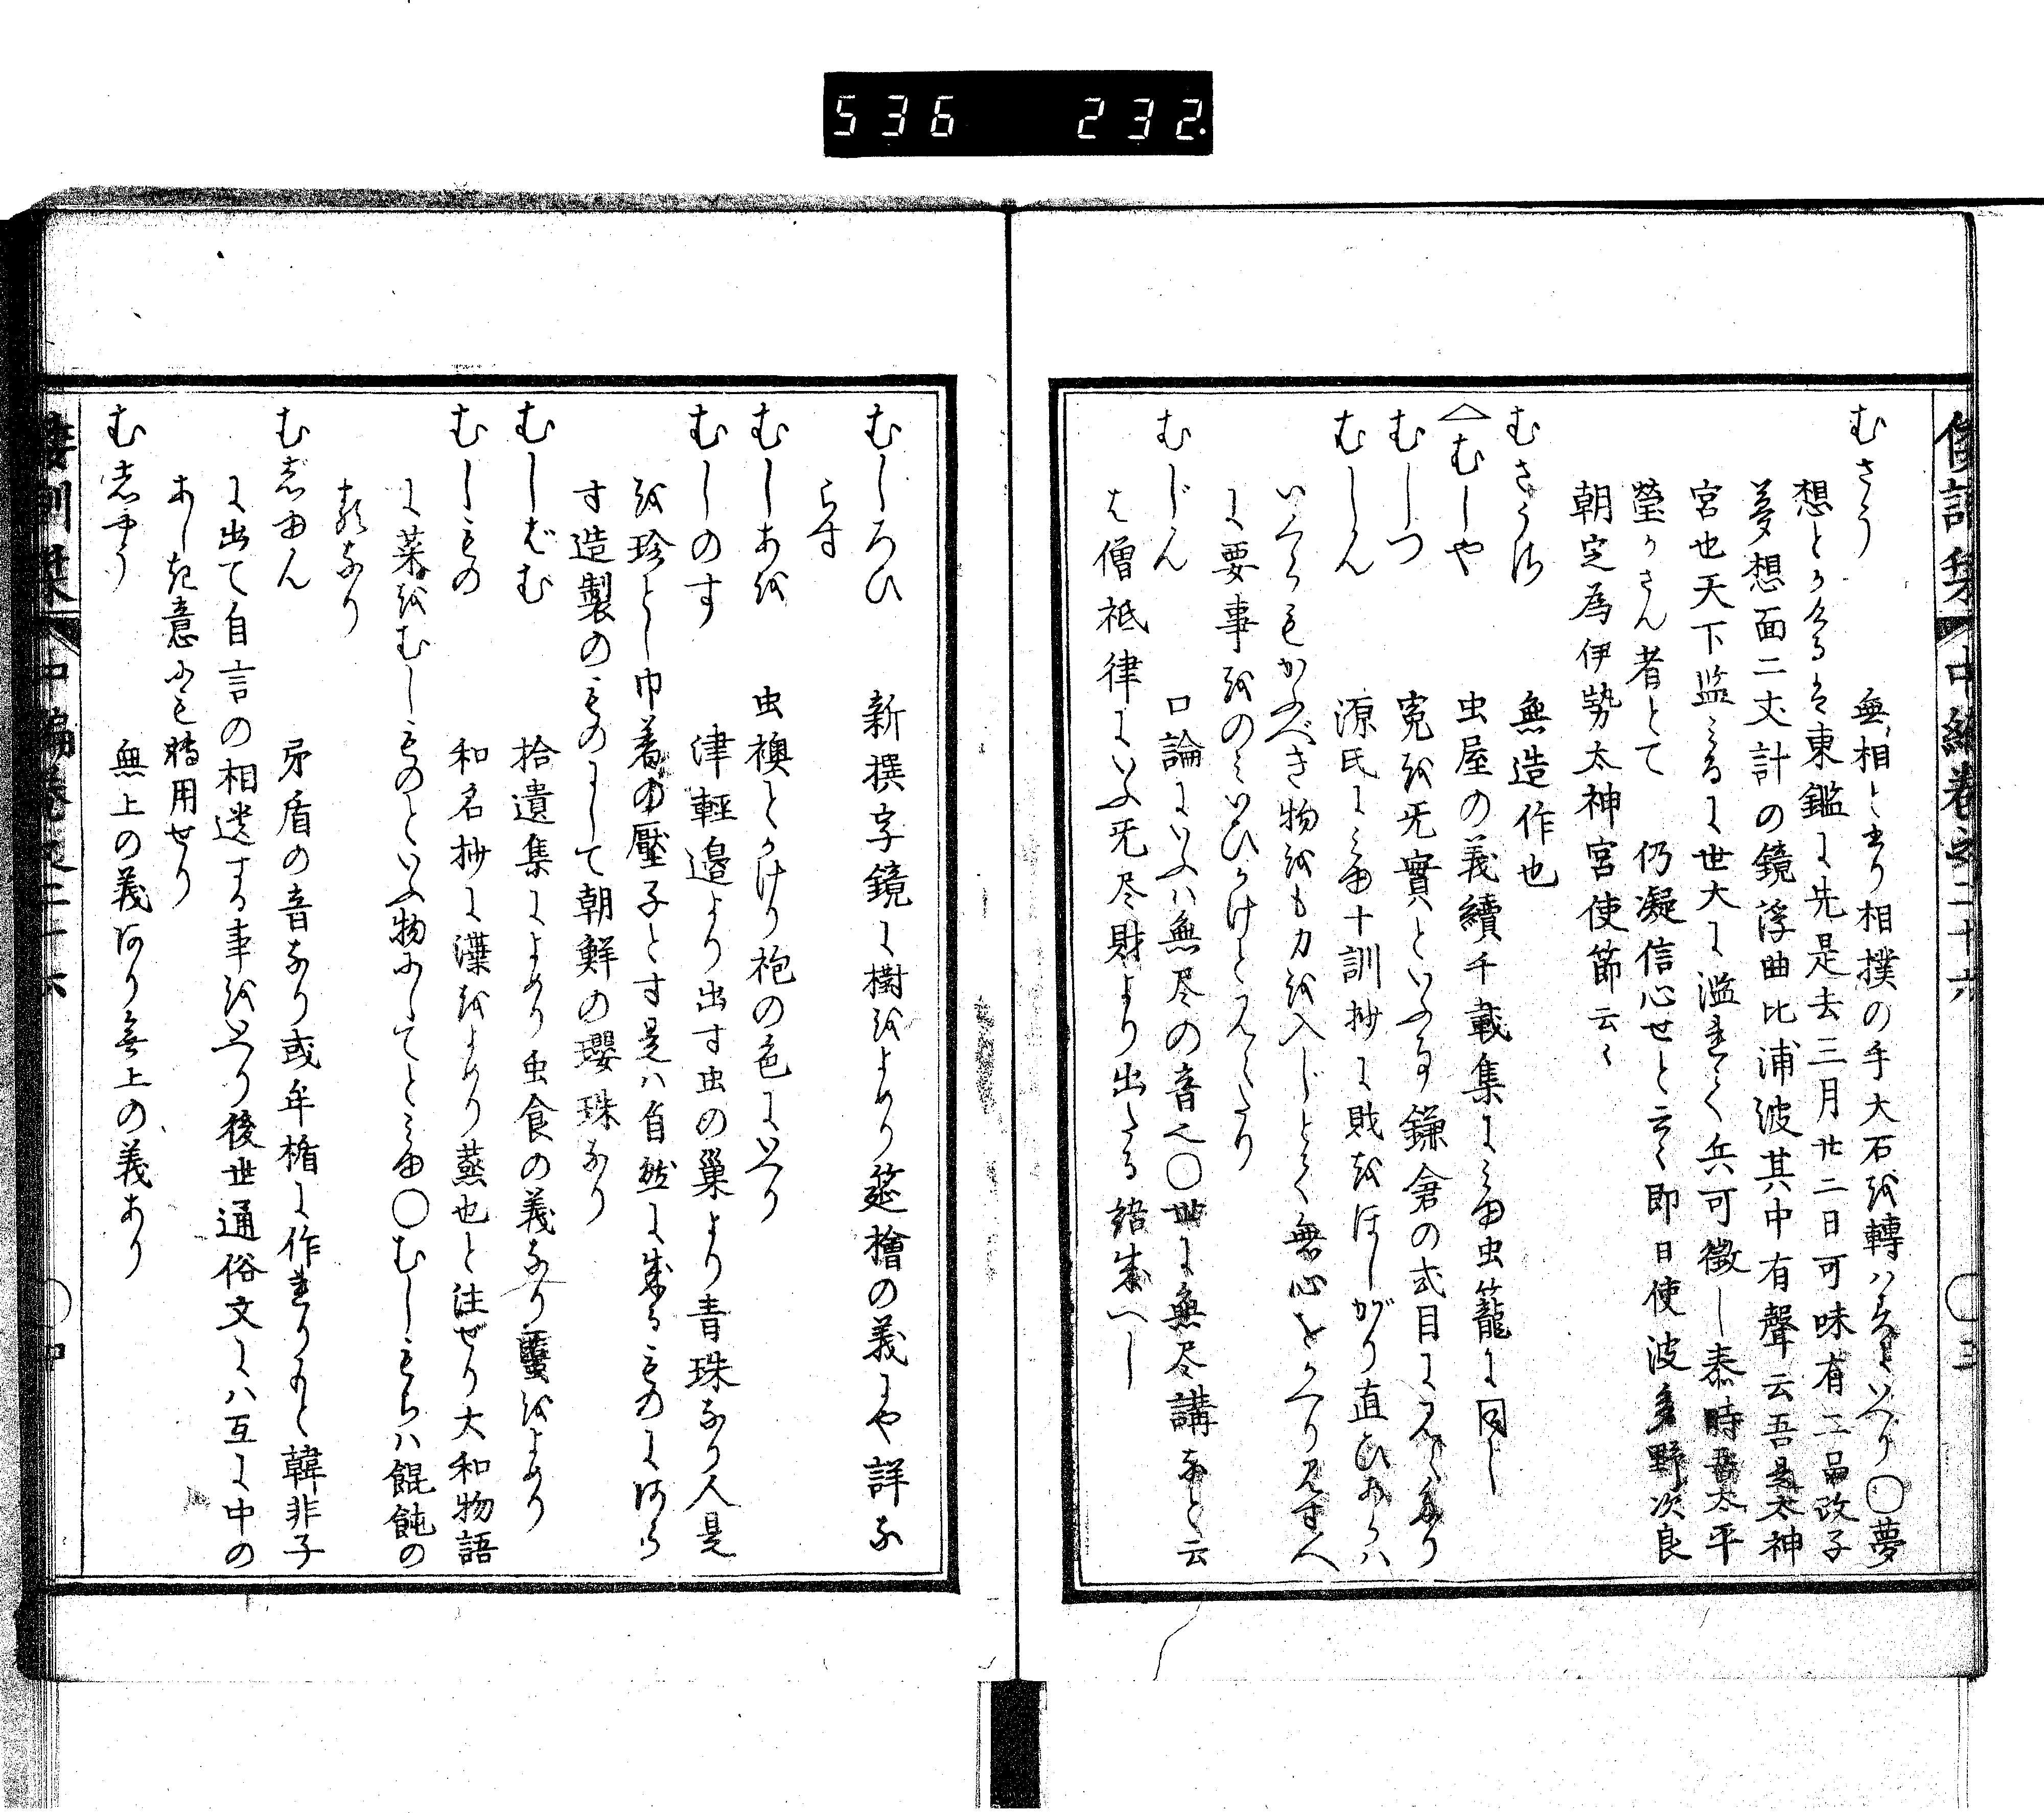 536 232
倭訓栞 中編卷之二十六 ○三
むさう 無相とあり相撲の手大石を轉はすをいへり○夢
想とかけるは東鑑に先是去三月廿二日可味有三品改子
夢想面二丈計の鏡浮曲比浦波其中有聲云吾是太神
宮也天下監みるに世大に濫れて兵可徴し泰時吾太平
瑩かさん者とて 仍凝信心せと云々即日使波多野次良
朝定為伊勢太神宮使節云々
むさうさ 無造作也
△むしや 虫屋の義續千載集にみゆ虫籠に同じ
むしつ 寃を无實といふ事鎌倉の式目に見えたり
むしん 源氏にみゆ十訓抄に財をほしがり直ひあらは
いくらもかふべき物をも力を入じとて無心をかへり見すへ
に要事をのみいひかけと見えたり
むじん 口論にいふハ無尽の音也○世に無尽講なと云
は僧祇律にいふ无尽財より出たる諸成へし
むしろひ 新撰字鏡に樹をよめり筵檜の義にや詳な
らす
むしあを 虫襖とかけり袍の色にいへり
むしのす 津輕邉より出す虫の巢より青珠あり人是
を珍とし巾着の壓子とす是ハ自然に成るものにあら
す造製のものにして朝鮮の瓔珠なり
むしばむ 拾遺集によめり虫食の義なり蠧をよめり
むしもの 和名抄に𤍜をよめり蒸也と注せり大和物語
に菜をむしものといふ物にしてとみゆ○むしもちハ餛飩の
類なり
むじゆん 矛盾の音なり或牟楯に作れりもと韓非子
に出て自言の相違する事をいへり後世通俗文にハ互に中の
あしき意にも轉用せり
むじやう 無上の義あり無上の義あり
倭訓栞 中編卷之二十六 ○四